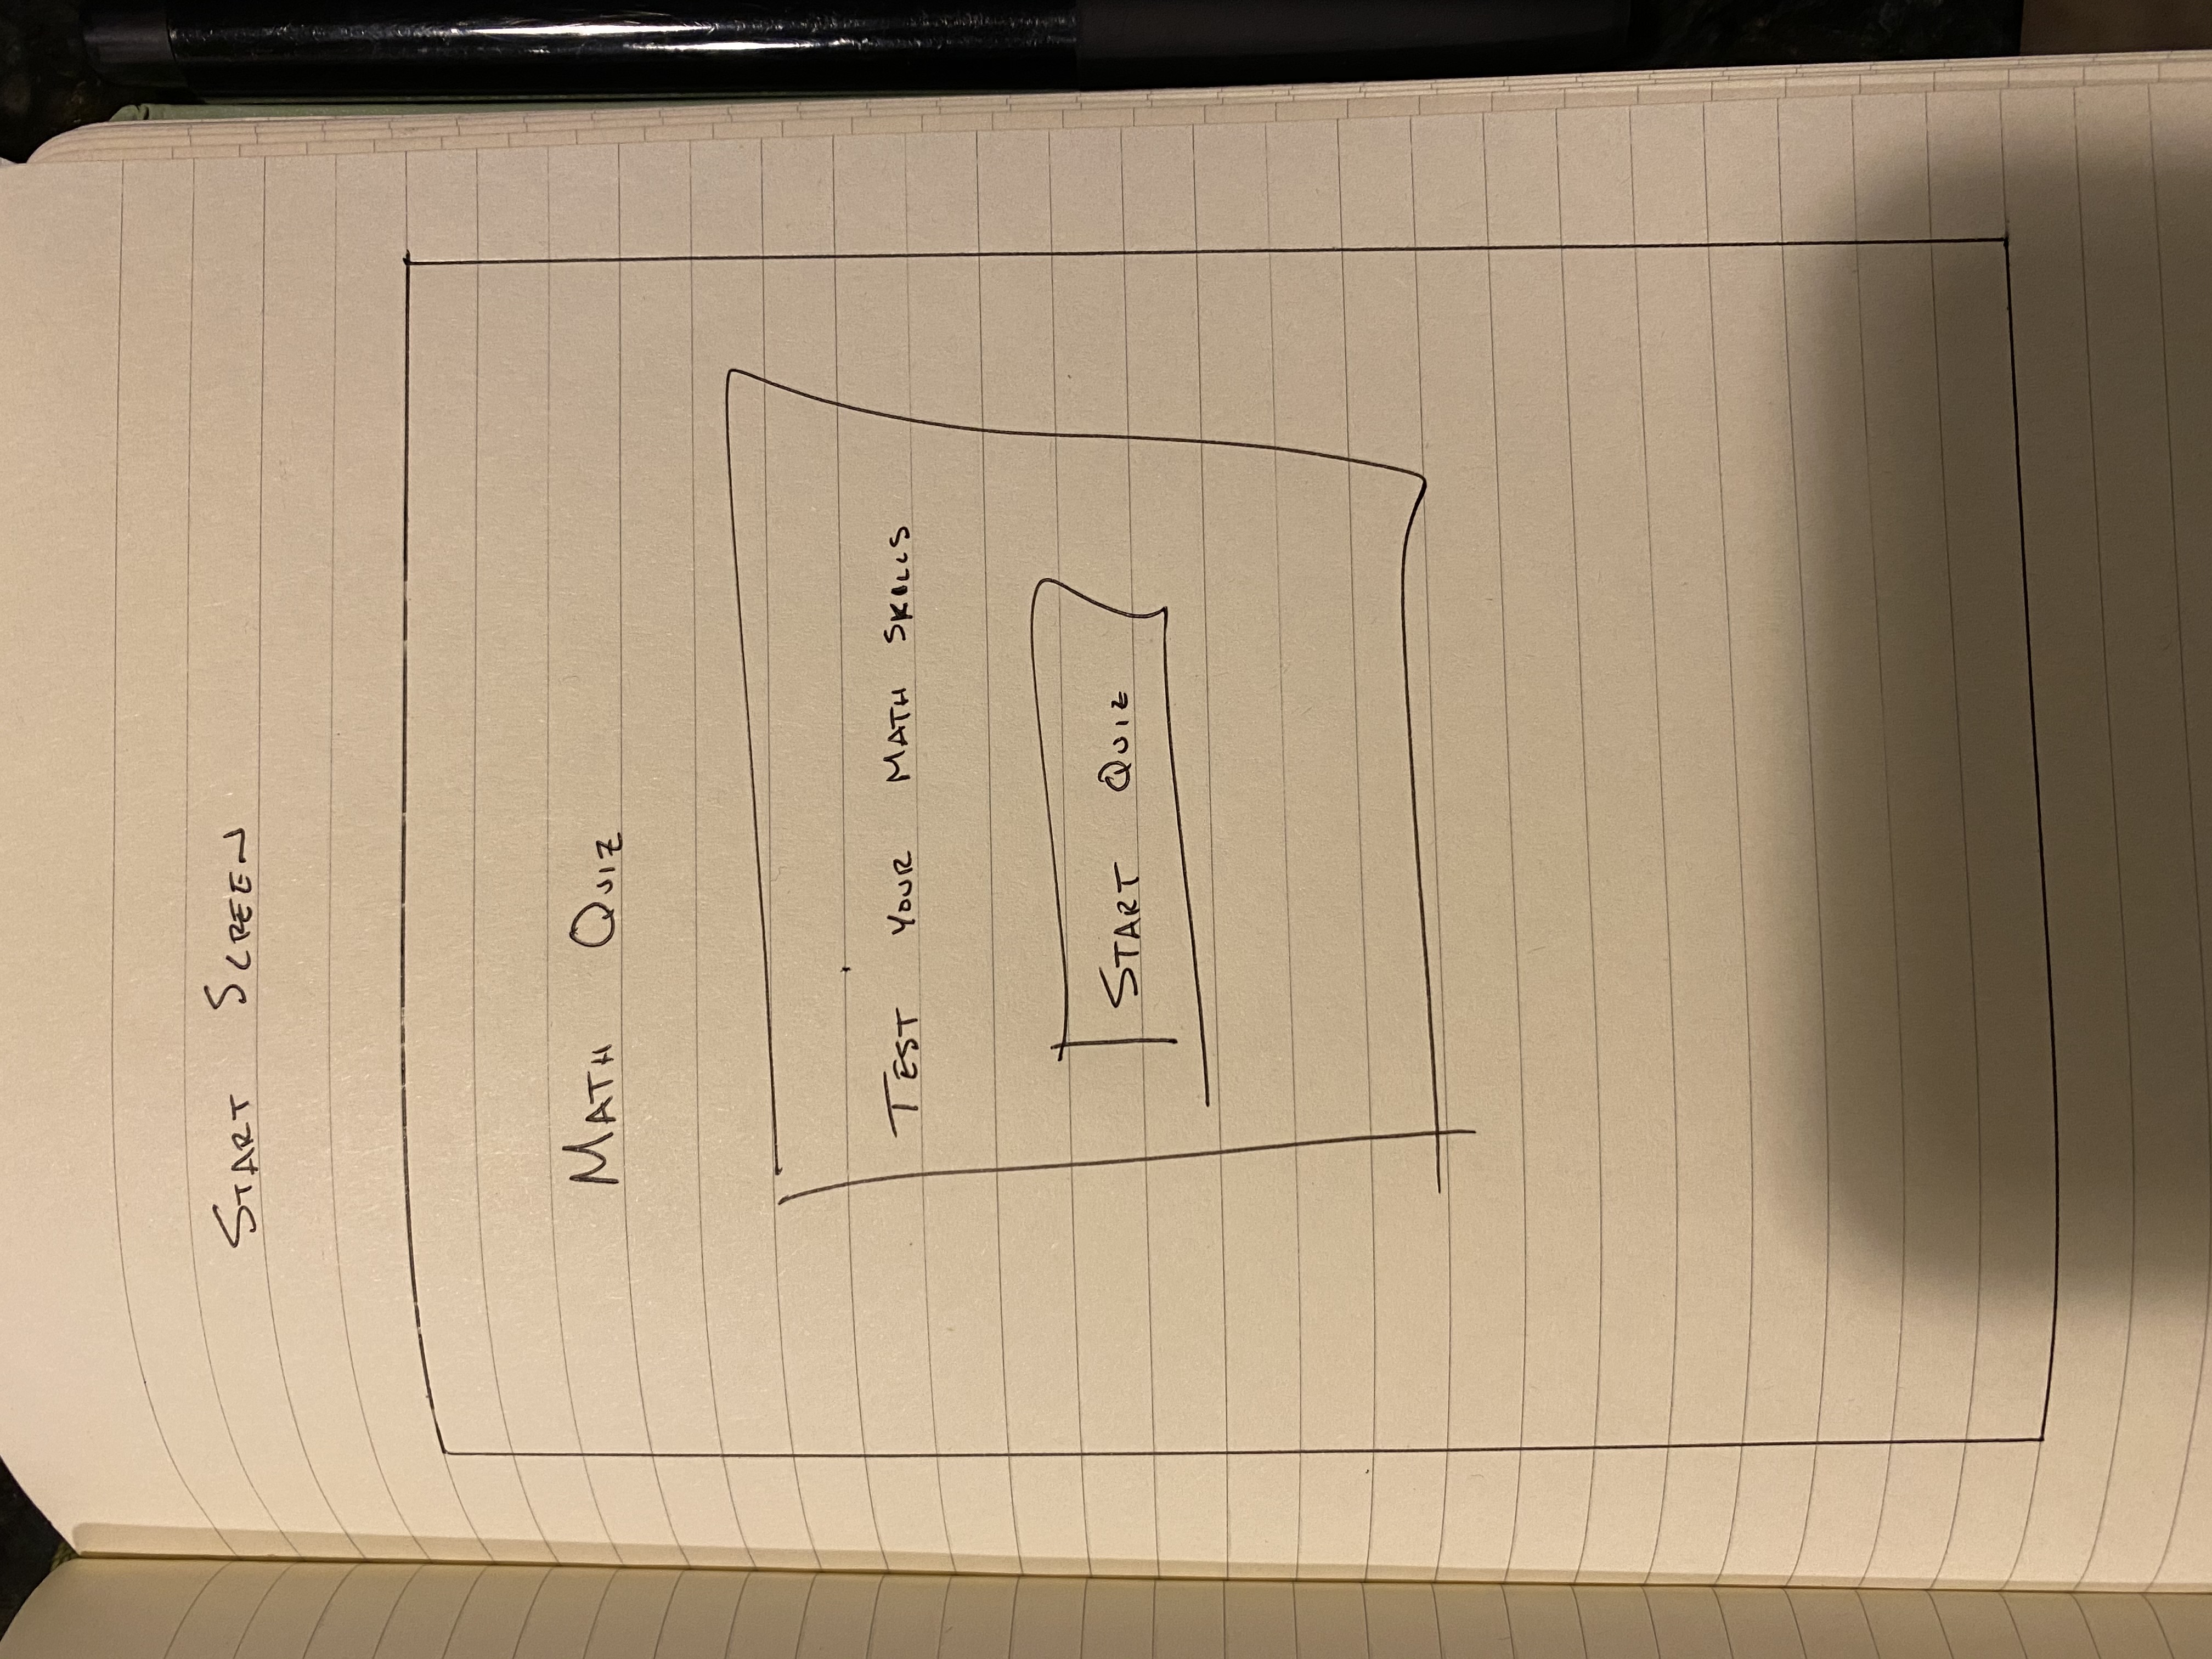 START SCREEN
MATH QUIZ
TEST YOUR MATH SKILLS
START QUIZ